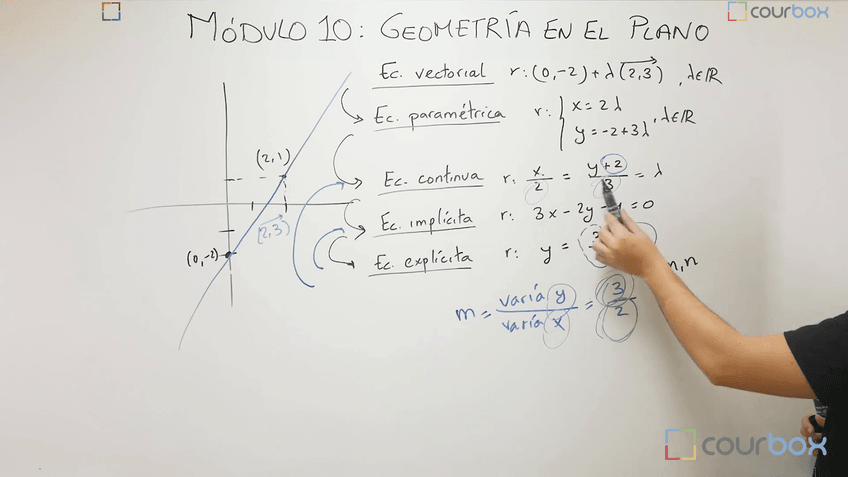 MÓDULO 10: GEOMETRÍA EN EL PLANO
courbox
Ec. vectorial r: (0,-2) + λ(2,3) , λ∈ℝ
Ec. paramétrica r: { x = 2λ
y = -2+3λ , λ∈ℝ
Ec. continua r: x/2 = y+2/3 = λ
Ec. implícita r: 3x - 2y - = 0
Ec. explícita r: y =
m,n
m = varía y / varía x = 3/2
(2,1)
(2,3)
(0,-2)
courbox